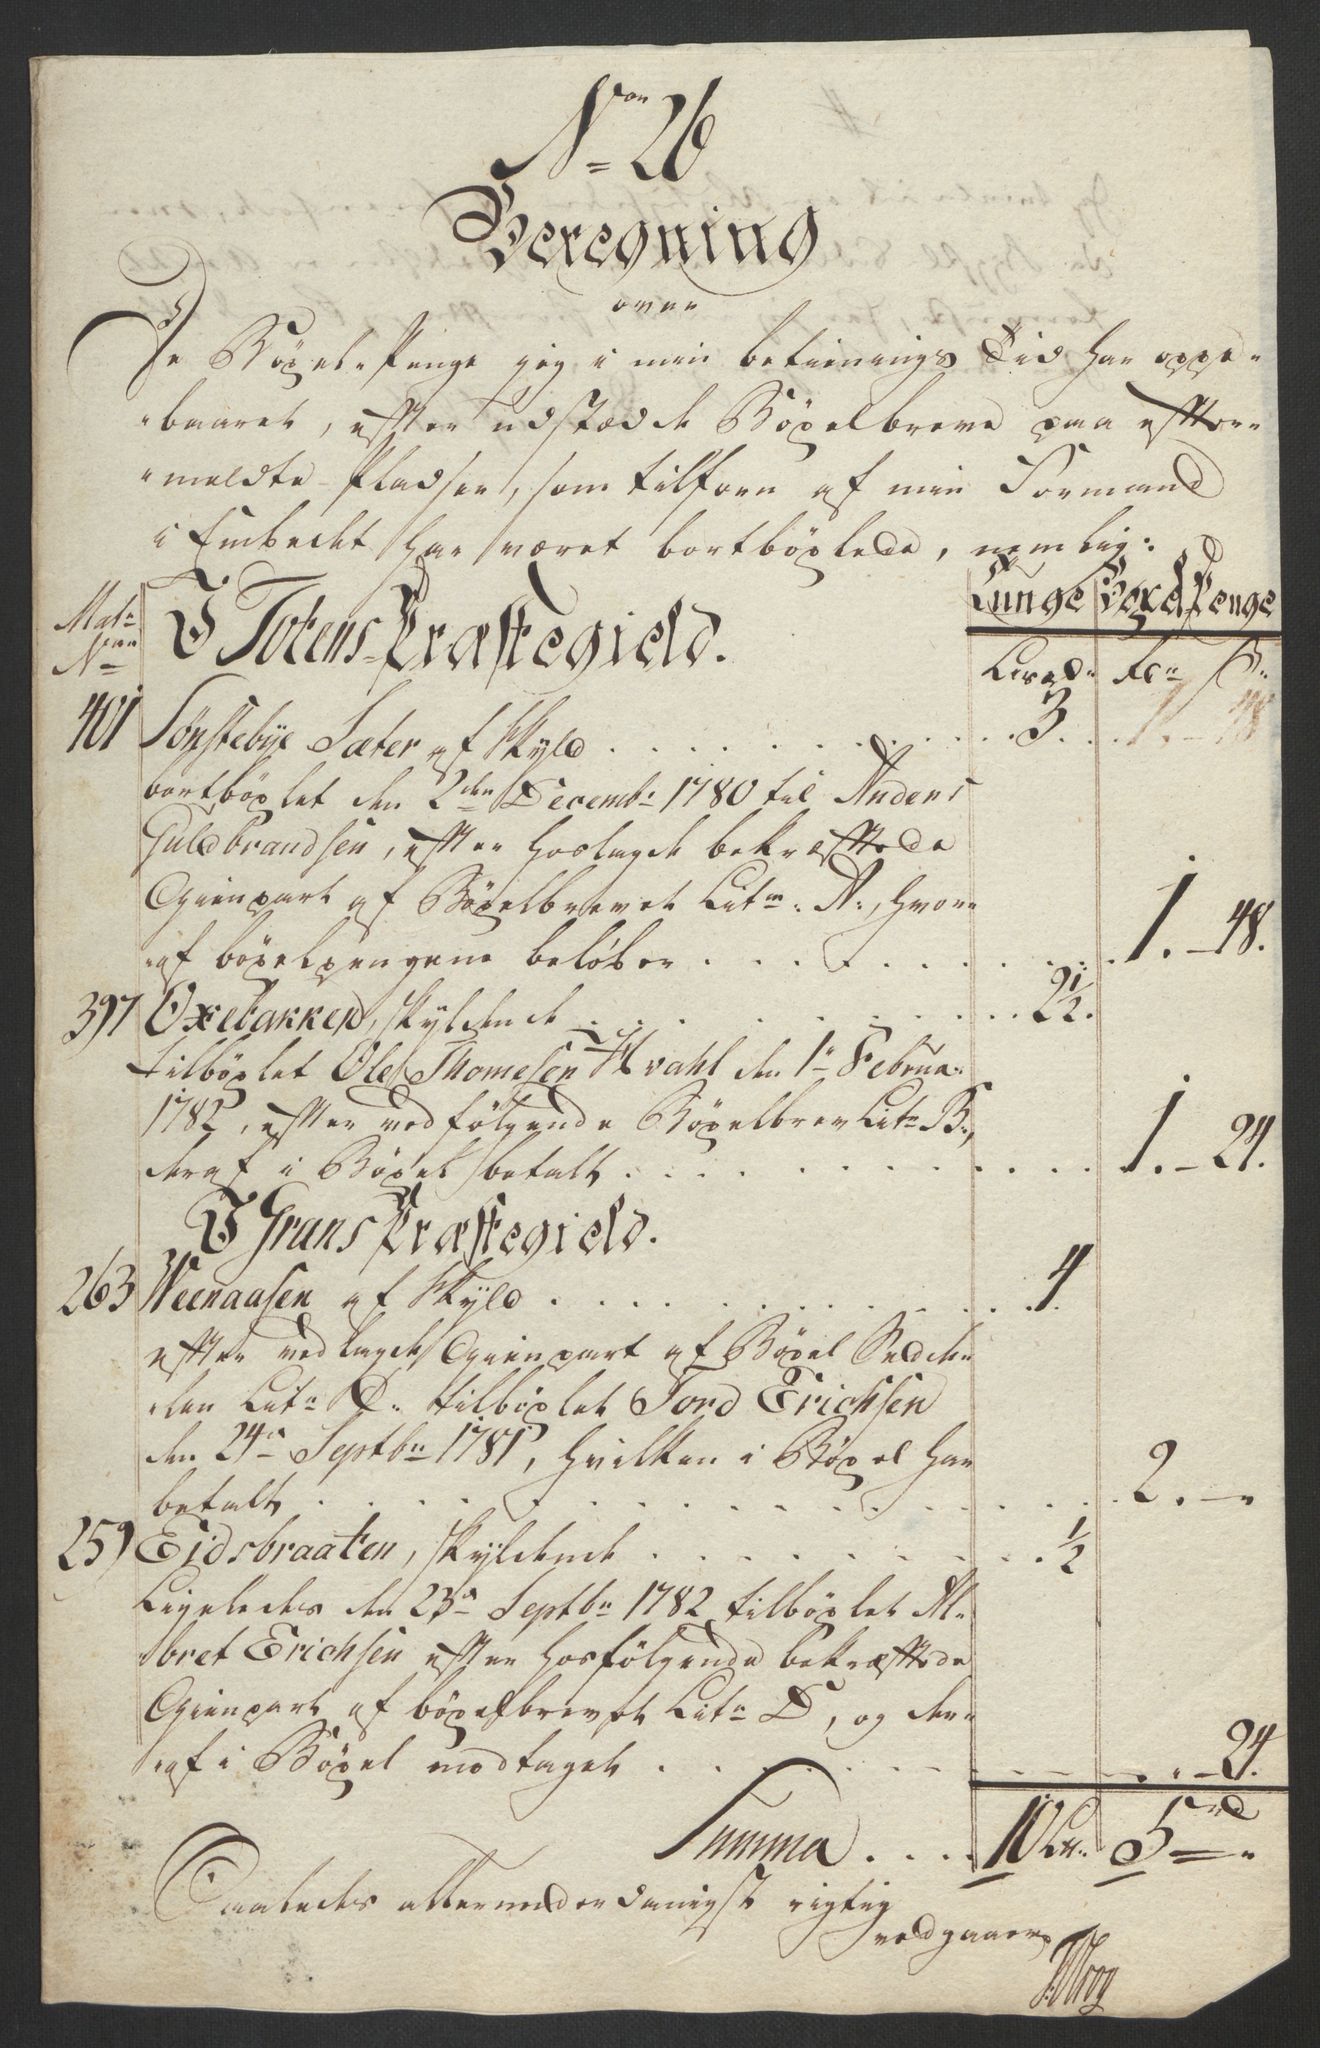 Nron 26
Beregning
over
De Böxel-Penge jeg i min betienings Tid har oppe-
baaret, efter udstædde Böxelbreve paa efter-
meldte Pladser, som tilforn af min Formand
i Embedet har været bortböxlede, nemlig:
Mat:
Nrne
I Totens Præstegield.
Tunge
Boxel Penge
Lispd:
Rd:
ß:
401 Sönstebÿe Sæter af Skyld . . . 3 . . . 1. - 48
bortböxlet den 2den Decemb: 1780 til Anders
Guldbrandsen, efter hoslagde bekræftede
Gienpart af Böxelbrevet Litr: A:, hvor-
af böxelpengene belöber . . . 1. - 48.
397 Oxebakken, skyldende . . . 2 1/2.
tilböxlet Ole Thomesen Hvahl den 1te Februa:
1782, efter vedfölgende Böxelbrev Litr: B:,
deraf i Böxel betalt . . . 1. - 24.
I Grans Præstegield.
263 Weenaasen af Skyld . . . 4
efter vedlagde Gienpart af Böxel Sedde-
len Litr: C: tilböxlet Tord Erichsen
den 24de Septbr: 1781, hvilken i Böxel har
betalt . . . 2. -
259 Eidsbraaten, skyldende . . . 1/2
Ligeledes den 23de Septbr: 1782 tilböxlet Al-
bret Erichsen efter hosfölgende bekræftede
Gienpart af böxelbrevet Litr: D, og der-
af i Böxel modtaget . . . - 24.
Summa . . . 10 L℔: 5 rd -
Saaledes allerunderdanigst rigtig
vedgaaer